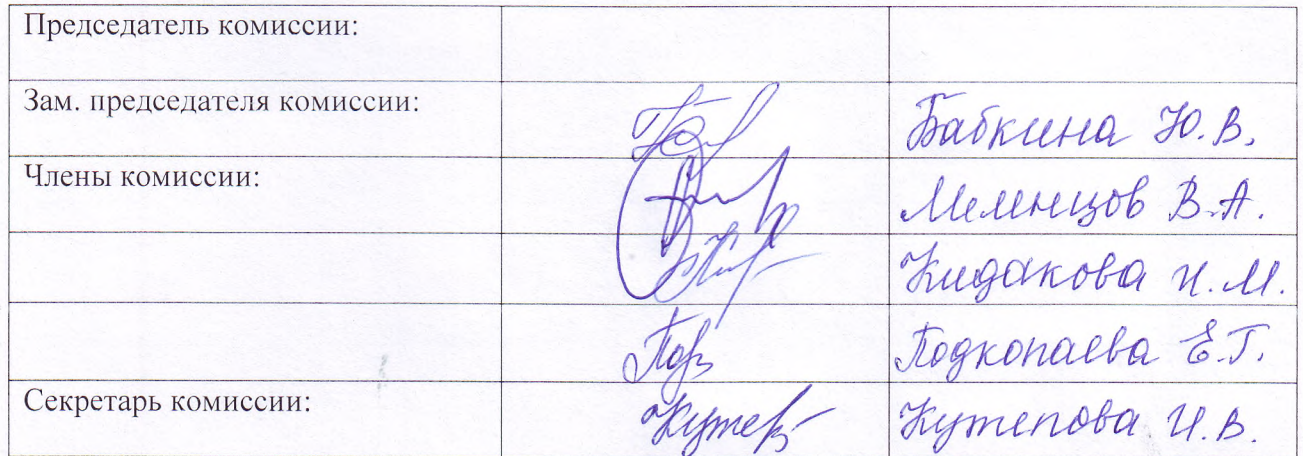 Председатель комиссии:
Зам. председателя комиссии: Бабкина Ю.В.
Члены комиссии: В.А.
Кидакова И.М.
Подкопаева Е.Г.
Секретарь комиссии: Кутепова И.В.